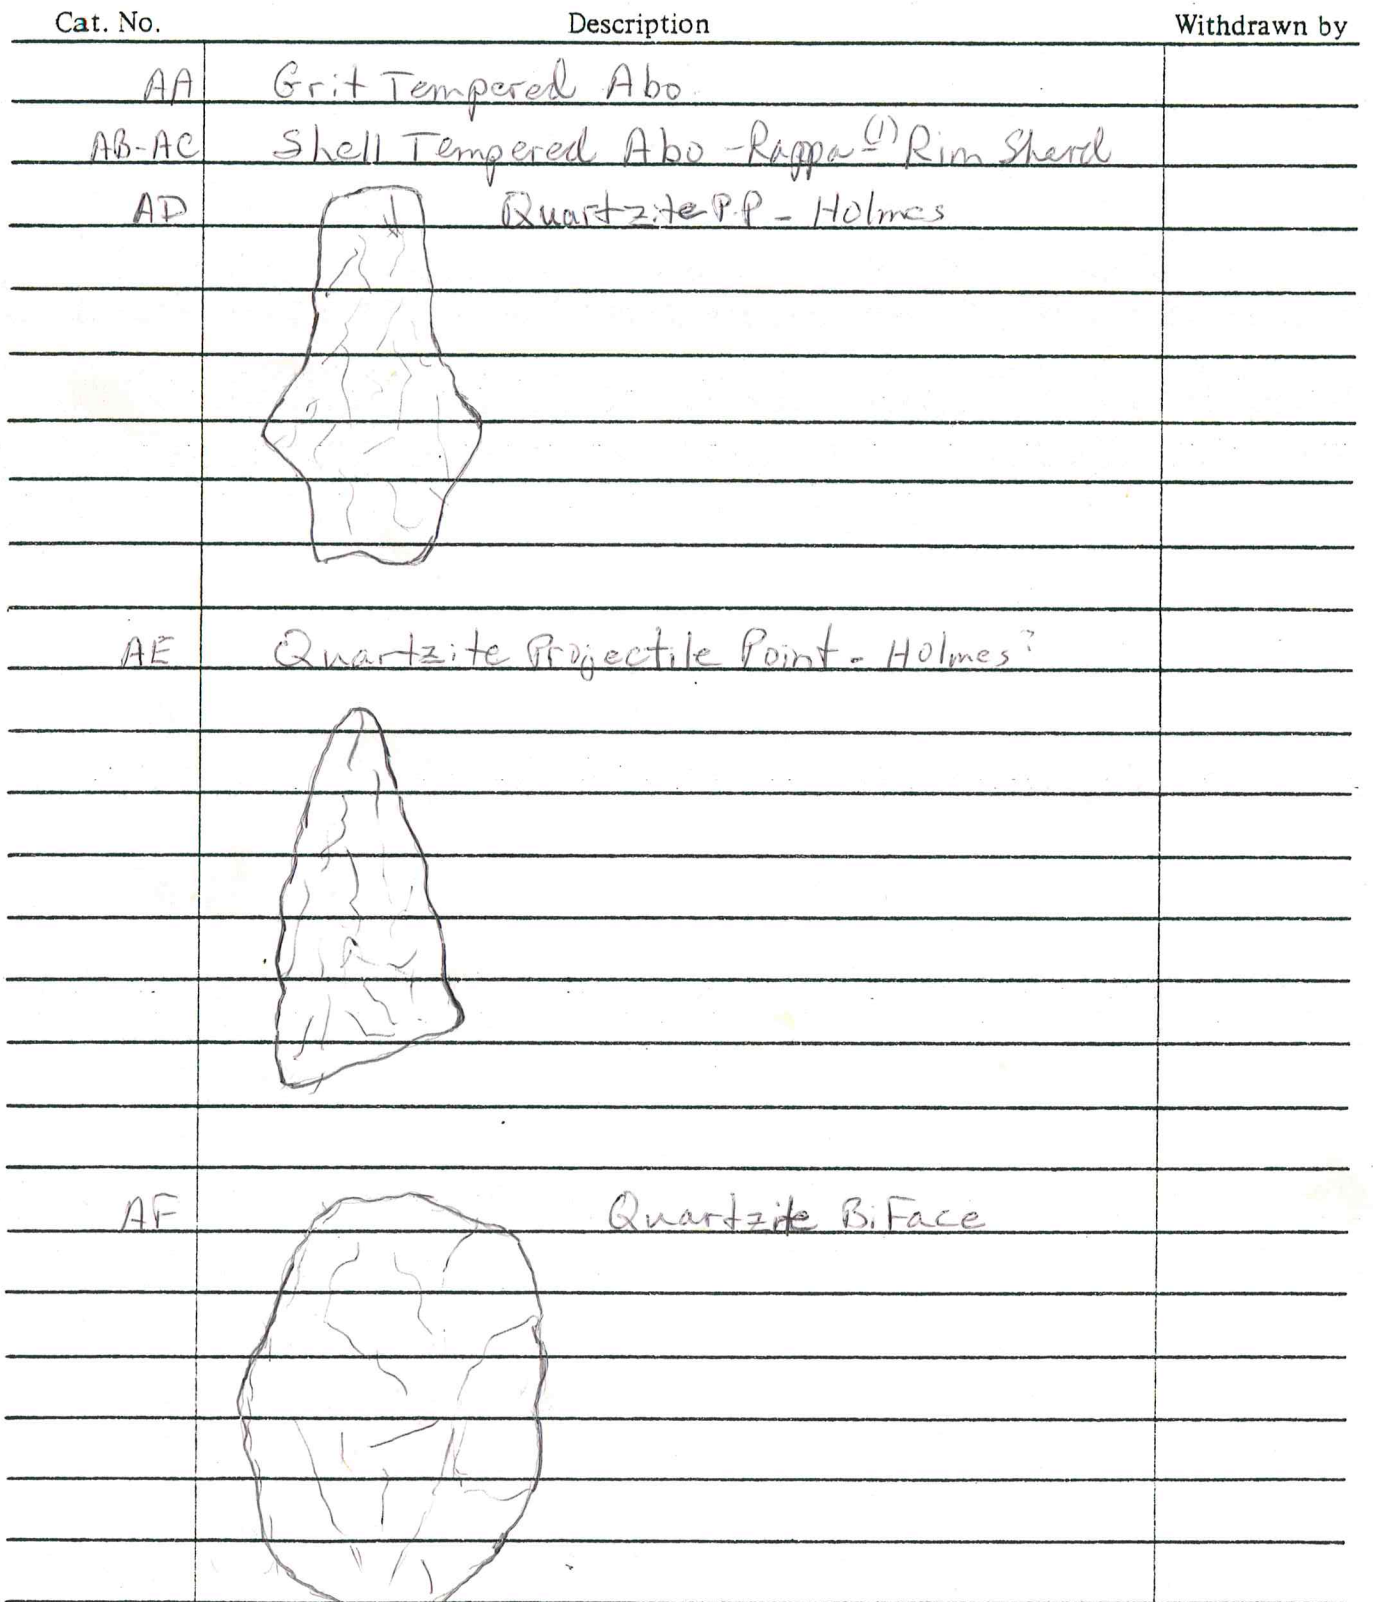 Cat. No. Description Withdrawn by
AA Grit Tempered Abo
AB-AC Shell Tempered Abo - Rappa (1) Rim Sherd
AD Quartzite P.P - Holmes
AE Quartzite Projectile Point - Holmes?
AF Quartzite BiFace